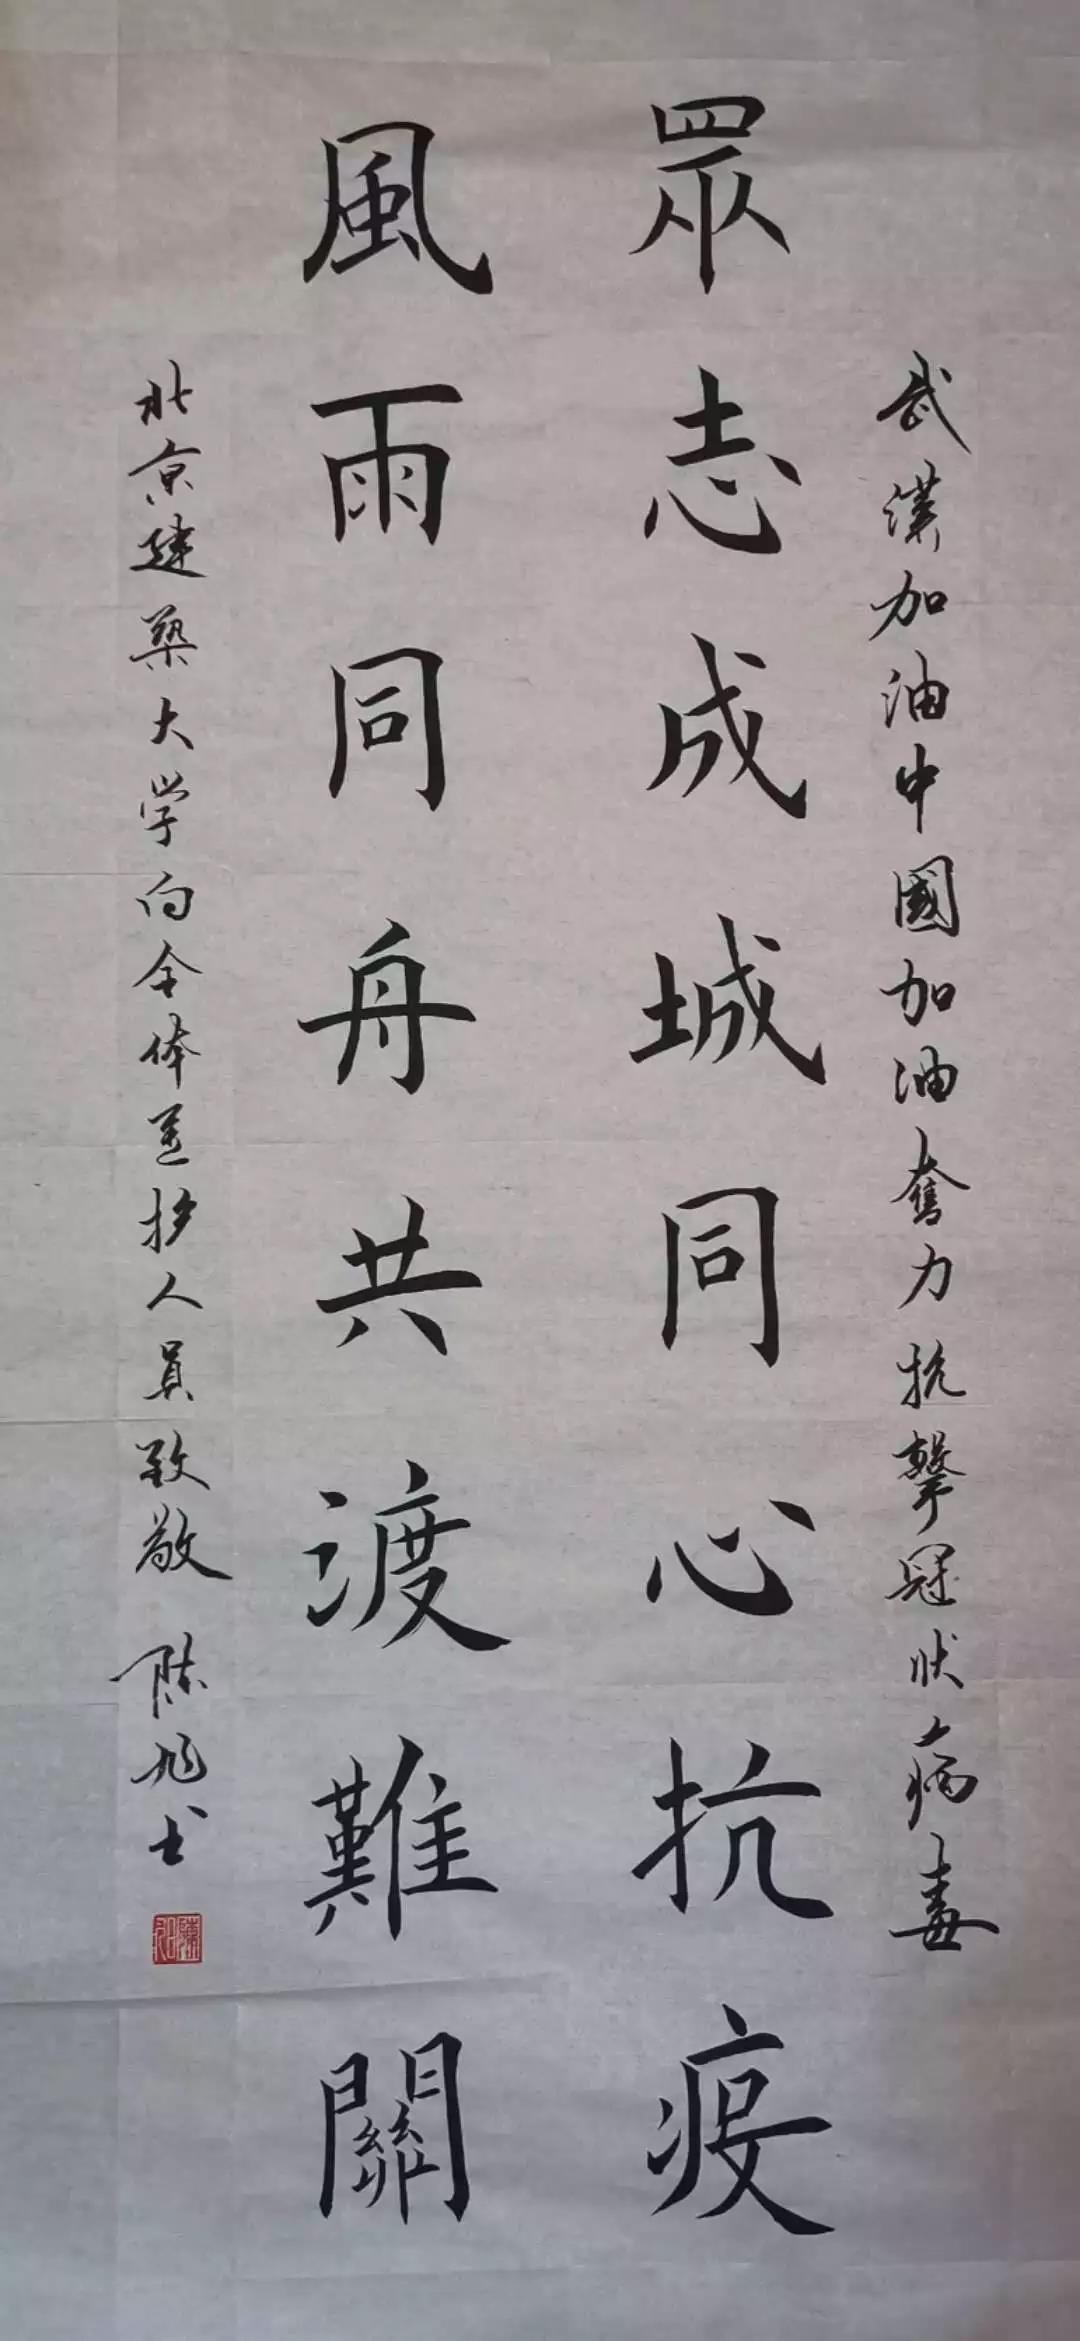 武漢加油中國加油奮力抗擊冠狀病毒
眾志成城同心抗疫
風雨同舟共渡難關
北京建築大学向全体医护人員致敬 陈旭书